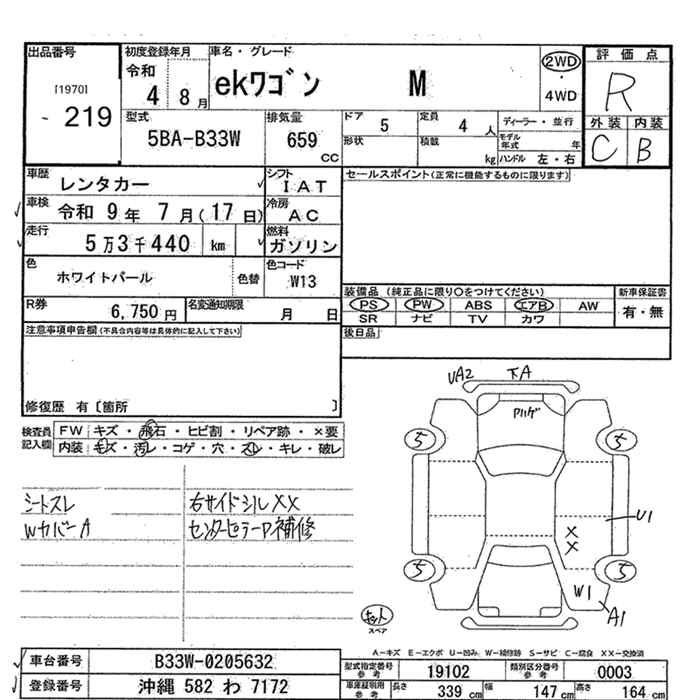 出品番号
[1970]
219
初度登録年月
令和
4 8月
車名・グレード
ekワゴン M
2WD
・
4WD
評価点
R
外装 内装
C B
型式
5BA-B33W
排気量
659
CC
ドア 5
形状
定員 4 人
積載 kg
ディーラー・並行
モデル年式 年
ハンドル 左・右
車歴 レンタカー
シフト IAT
車検 令和 9年 7月(17日)
冷房 AC
走行 5万3千440 km
燃料 ガソリン
色 ホワイトパール 色替
色コード W13
R券 6,750円
名変通知期限 月 日
セールスポイント(正常に機能するものに限ります)
装備品 (純正品に限り○をつけてください)
PS PW ABS エアB AW
SR ナビ TV カワ
新車保証書
有・無
後日品
注意事項申告欄(不具合内容等は具体的に記入して下さい)
修復歴 有〔箇所 〕
検査員記入欄
FW キズ・飛石・ヒビ割・リペア跡・×要
内装 キズ・汚レ・コゲ・穴・スレ・キレ・破レ
シートスレ
Wカバー A
右サイドシル XX
センターピラーP補修
UA2 下A
Pハゲ
5 5
U1
X
X
5 5
W1
A1
キット
スペア
A-キズ E-エクボ U-凹み W-補修跡 S-サビ C-腐食 XX-交換済
車台番号 B33W-0205632
登録番号 沖縄 582 わ 7172
型式指定番号 参考 19102
類別区分番号 参考 0003
車庫証明用 参考 長さ 339 cm 幅 147 cm 高さ 164 cm